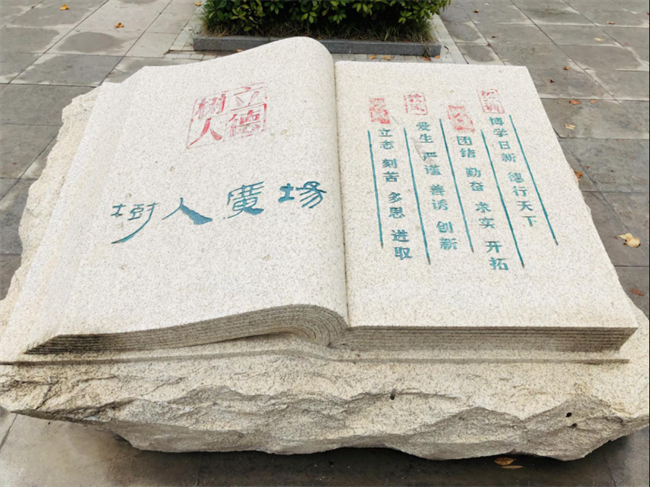 立德
樹人
樹人廣場
博学日新 德行天下
团结 勤奋 求实 开拓
爱生 严谨 善诱 创新
立志 刻苦 多思 进取